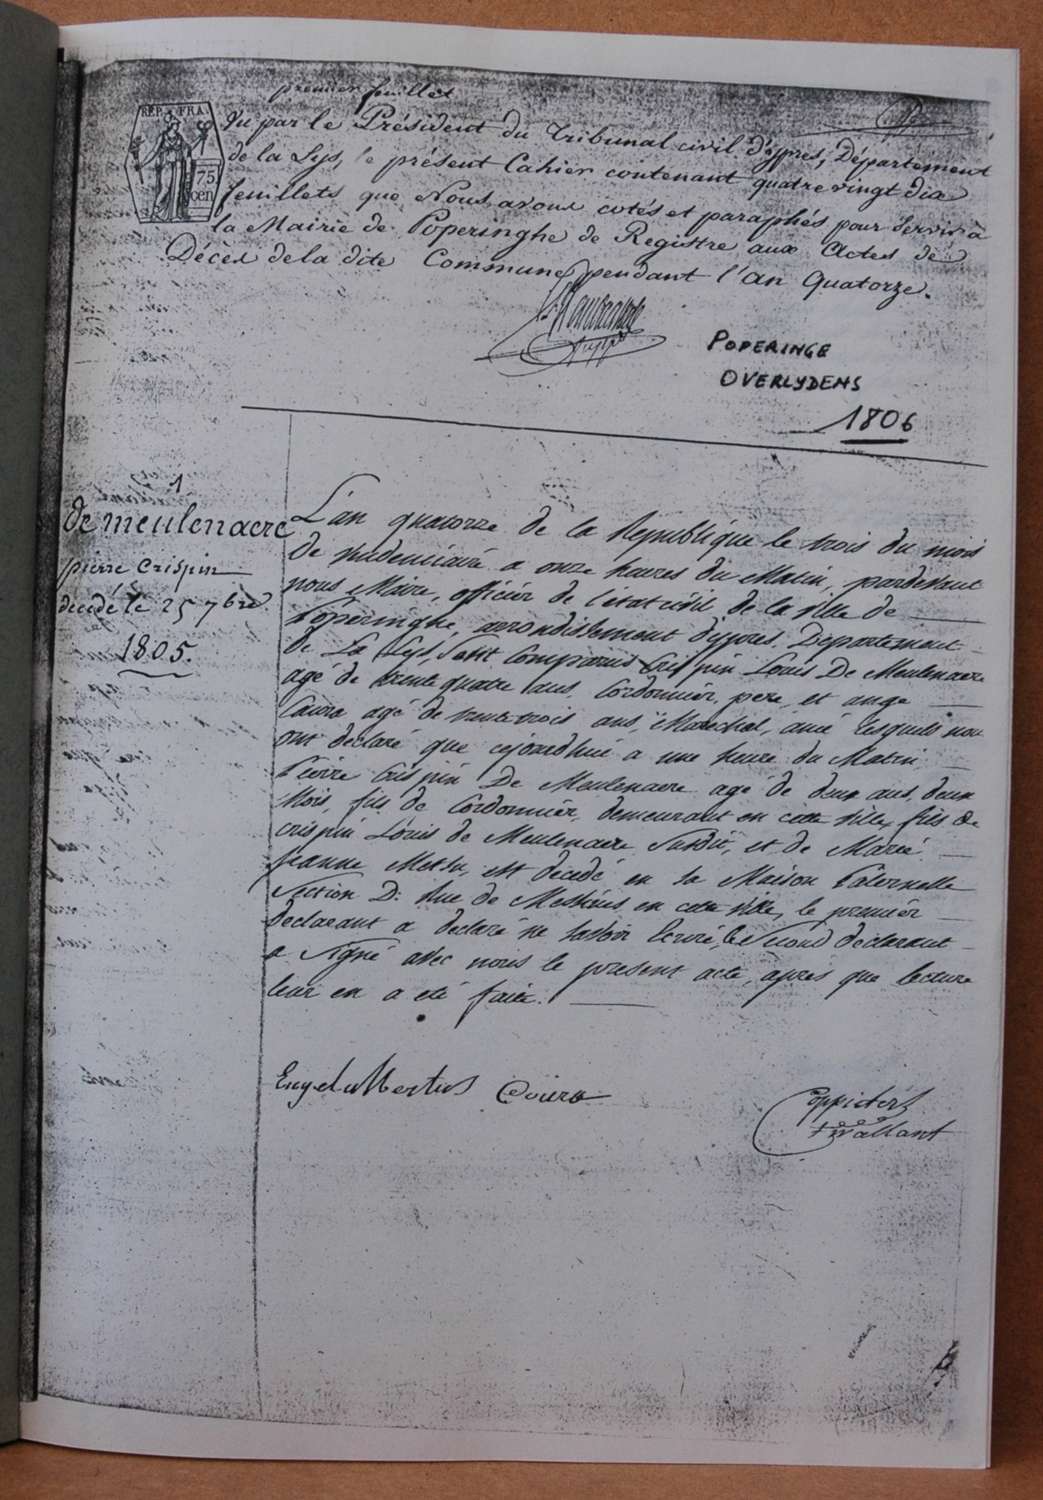 premier feuillet
REP. FRA.
75
cen
Vu par le Président du Tribunal civil d'ypres, Département
de la Lys, le présent Cahier contenant quatre vingt dix
feuillets que Nous avons cotés et paraphés pour servir à
la Mairie de Poperinghe de Registre aux Actes de
Décès de la dite Commune pendant l'an Quatorze.
POPERINGE
OVERLYDENS
1806
1
de meulenaere
pierre Crispin
décédé le 25 7bre
1805.
L'an quatorze de la République le trois du mois
de vendemiaire a onze heures du Matin, pardevant
nous Maire, officier de l'etat civil de la ville de
Poperinghe, arrondissement d'ypres, Departement
de La Lys, sont Comparus Crispin Louis De Meulenaere
agé de trente quatre ans, Cordonnier, pere, et ange
Couro agé de trente trois ans, Marechal, ami lesquels nous
ont declaré que cejourdhui a une heure du Matin
Pierre Crispin De Meulenaere agé de deux ans, deux
Mois, fils de Cordonnier, demeurant en cette ville, fils de
Crispin Louis de Meulenaere susdit, et de Marie
Jeanne Metsu, est décedé en sa Maison Paternelle
Section D: Rue de Messines en cette ville, le premier
declarant a declaré ne savoir Ecrire, le second declarant
a signé avec nous le present acte, après que lecture
leur en a eté faite.
Engelubertus Couro